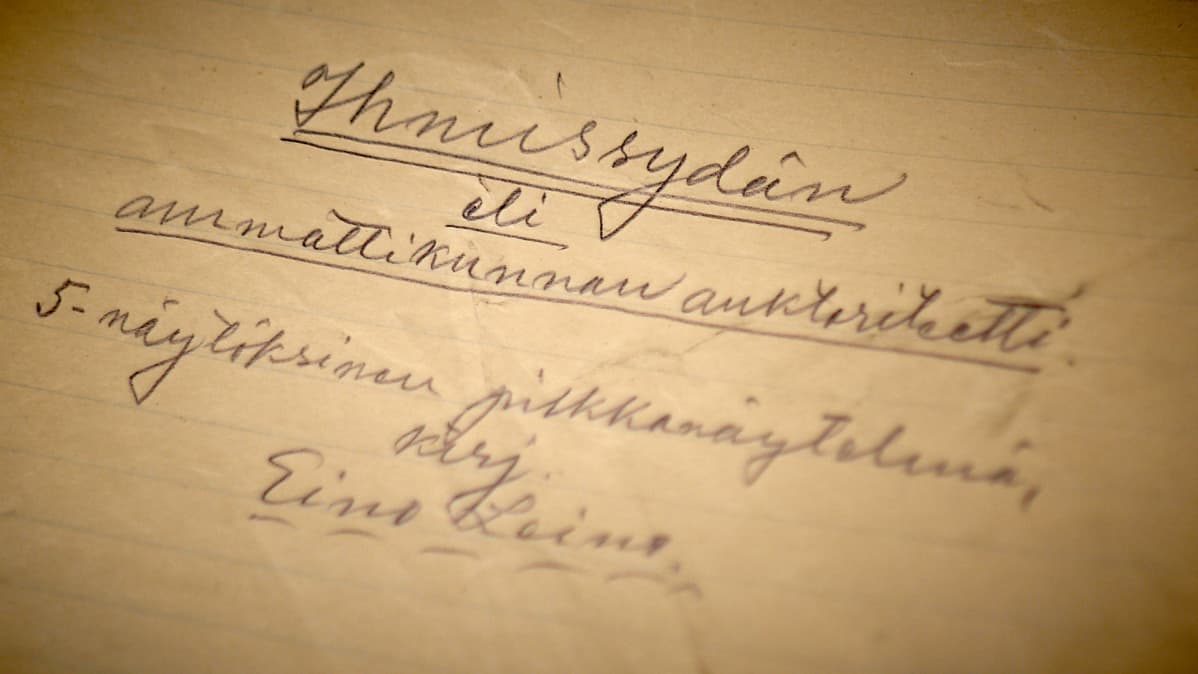 Ihmissydän
eli
ammattikunnan auktoriteetti.
5-näytöksinen pilkkanäytelmä,
kirj.
Eino Leino.